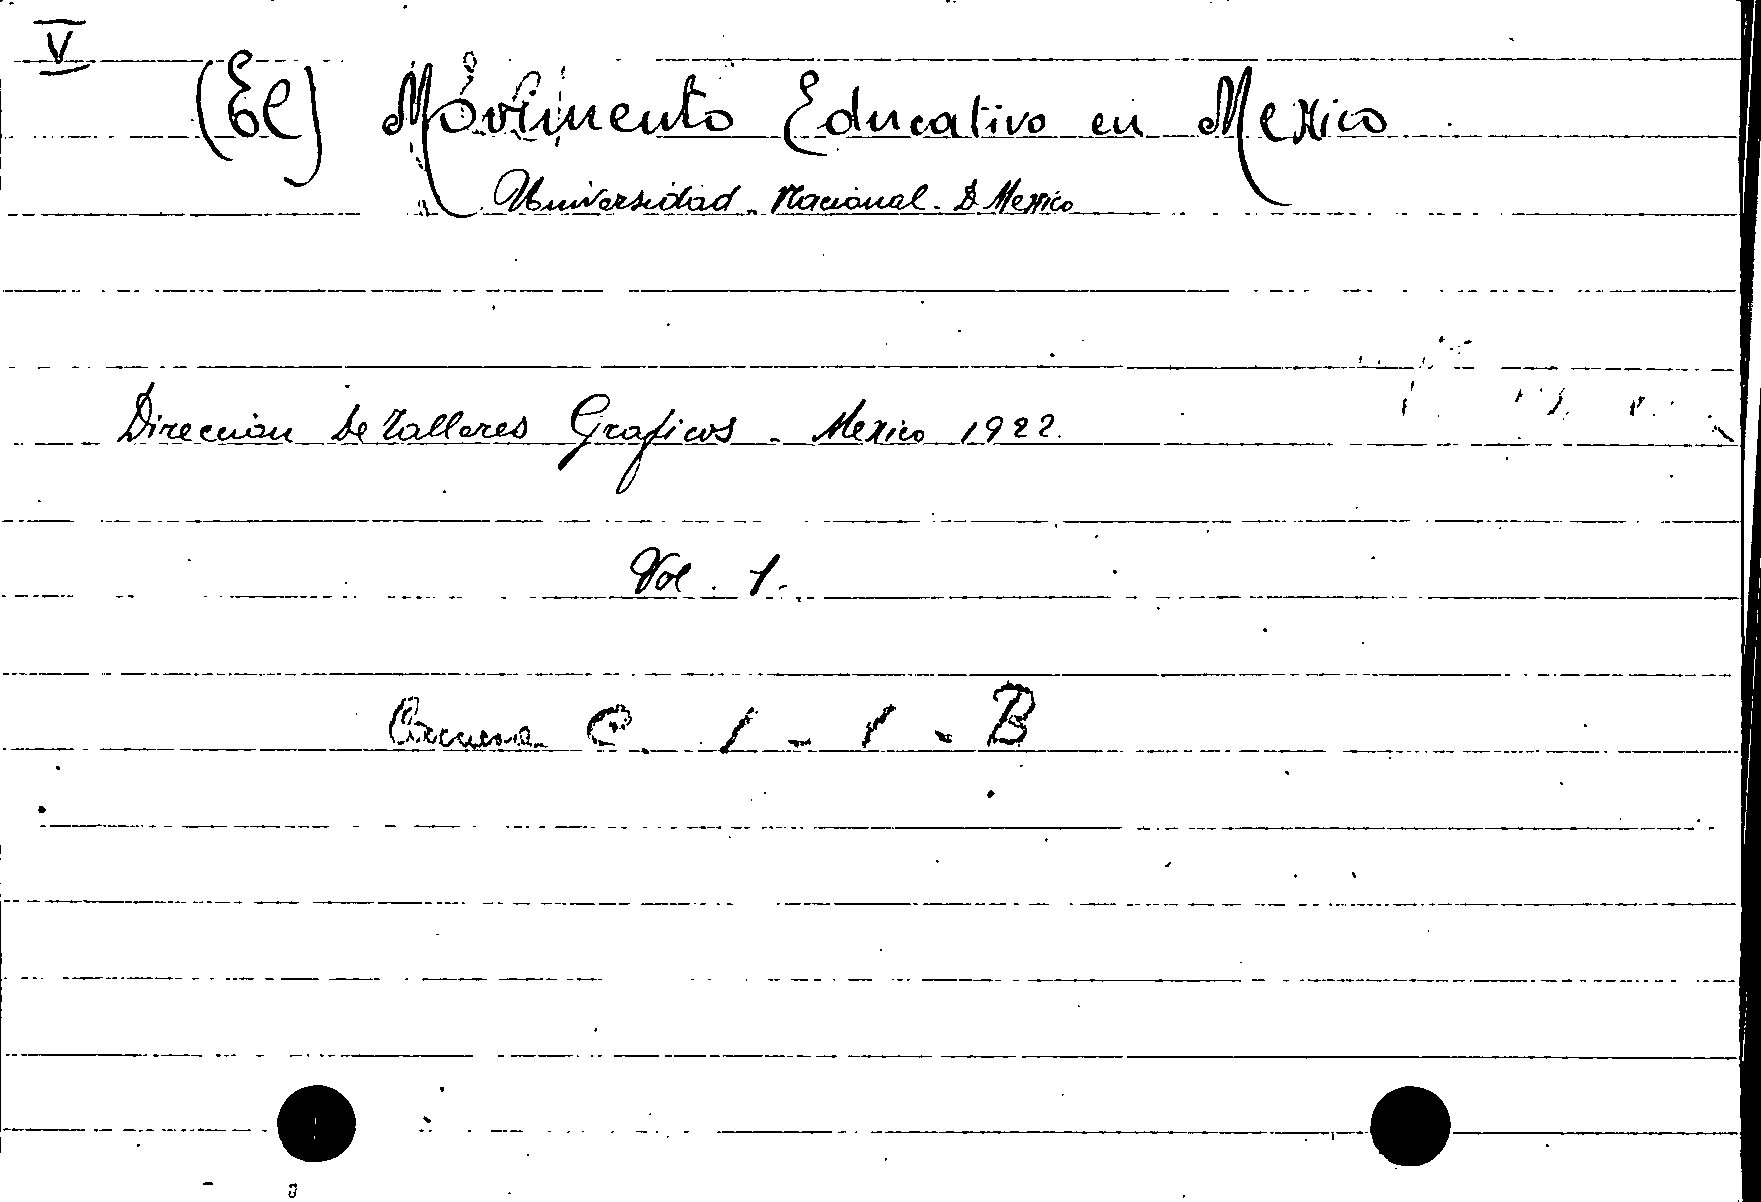 V
(El) Movimento Educativo en Mexico
Universidad Nacional. D Mexico
Direccion De Talleres Graficos. Mexico 1922.
Vol. 1.
C. 1 - 1 - B